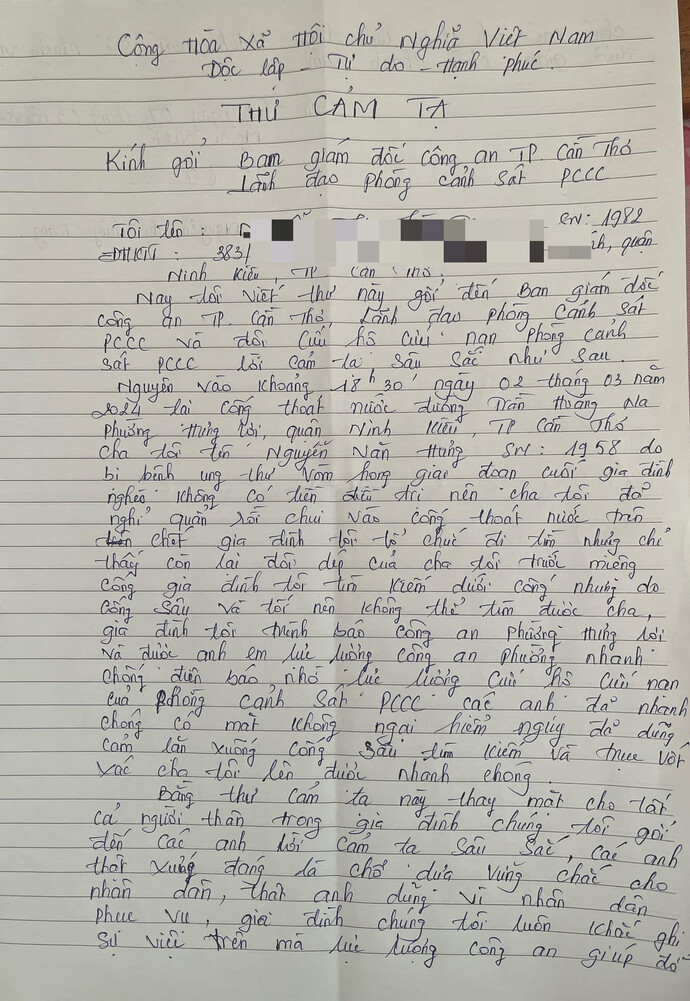 Cộng Hòa Xã Hội chủ Nghĩa Việt Nam
Độc lập - Tự do - Hạnh phúc.
THƯ CẢM TẠ
Kính gởi Bam giám đốc công an TP. Cần Thơ
Lãnh đạo phòng cảnh sát PCCC
Tôi tên : SN: 1982
ĐHKTT : 383/ quận
Ninh Kiều, TP Cần Thơ.
Nay tôi viết thư này gởi đến Ban giám đốc
công an TP. Cần Thơ, Lãnh đạo phòng Cảnh Sát
PCCC và đội Cứu hộ cứu nạn phòng cảnh
sát PCCC lời cảm tạ sâu sắc như sau.
Nguyên vào khoảng 18h30' ngày 02 tháng 03 năm
2024 tại cống thoát nước đường Trần Hoàng Na
phường Hưng lợi, quận Ninh Kiều, TP Cần Thơ
cha tôi tên Nguyễn Văn Hưng SN: 1958 do
bị bệnh ung thư vòm họng giai đoạn cuối gia đình
nghèo không có tiền điều trị nên cha tôi đã
nghỉ quẩn rồi chui vào cống thoát nước trên
chết gia đình tôi tổ chức đi tìm nhưng chỉ
thấy còn lại đôi dép của cha tôi trước miệng
cống gia đình tôi tìm kiếm dưới cống nhưng do
cống sâu và tối nên không thể tìm được cha,
gia đình tôi trình báo công an phường hưng lợi
và được anh em lực lượng công an phường nhanh
chóng điện báo nhờ lực lượng cứu hộ cứu nạn
của phòng cảnh sát PCCC các anh đã nhanh
chóng có mặt không ngại hiểm nguy đã dũng
cảm lặn xuống cống sâu tìm kiếm và trục vớt
xác cha tôi lên được nhanh chóng.
Bằng thư cảm tạ này thay mặt cho tất
cả người thân trong gia đình chúng tôi gởi
đến các anh lời cảm tạ sâu sắc, các anh
thật xứng đáng là chổ dựa vững chắc cho
nhân dân, thật anh dũng vì nhân dân
phục vụ, gia đình chúng tôi luôn khắc ghi
sự việc trên mà lực lượng công an giúp đỡ